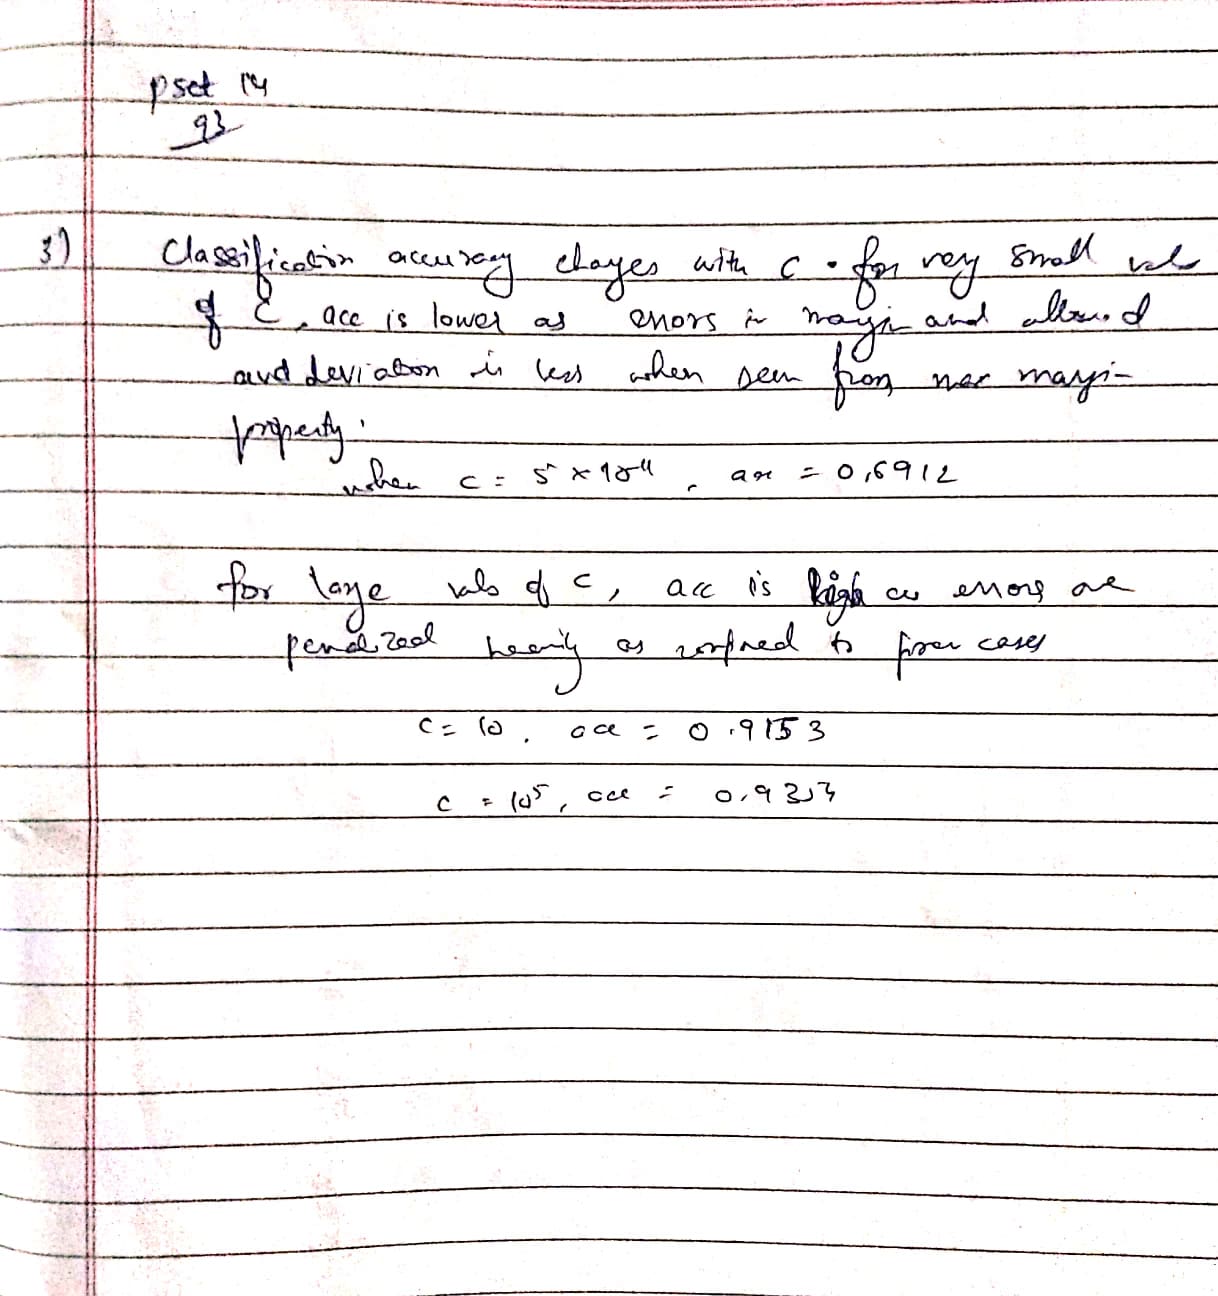 pset 14
93
3)
Classification accuracy changes with c. for very small vals
of C, acc is lower as errors in margin and allowed
and deviation is less when seen from max margin
property.
when c = 5 × 10⁻⁴, acc = 0.6912
for large vals of c, acc is high as errors are
penalized heavily as confined to fewer cases
c = 10, acc = 0.9153
c = 10⁵, acc =